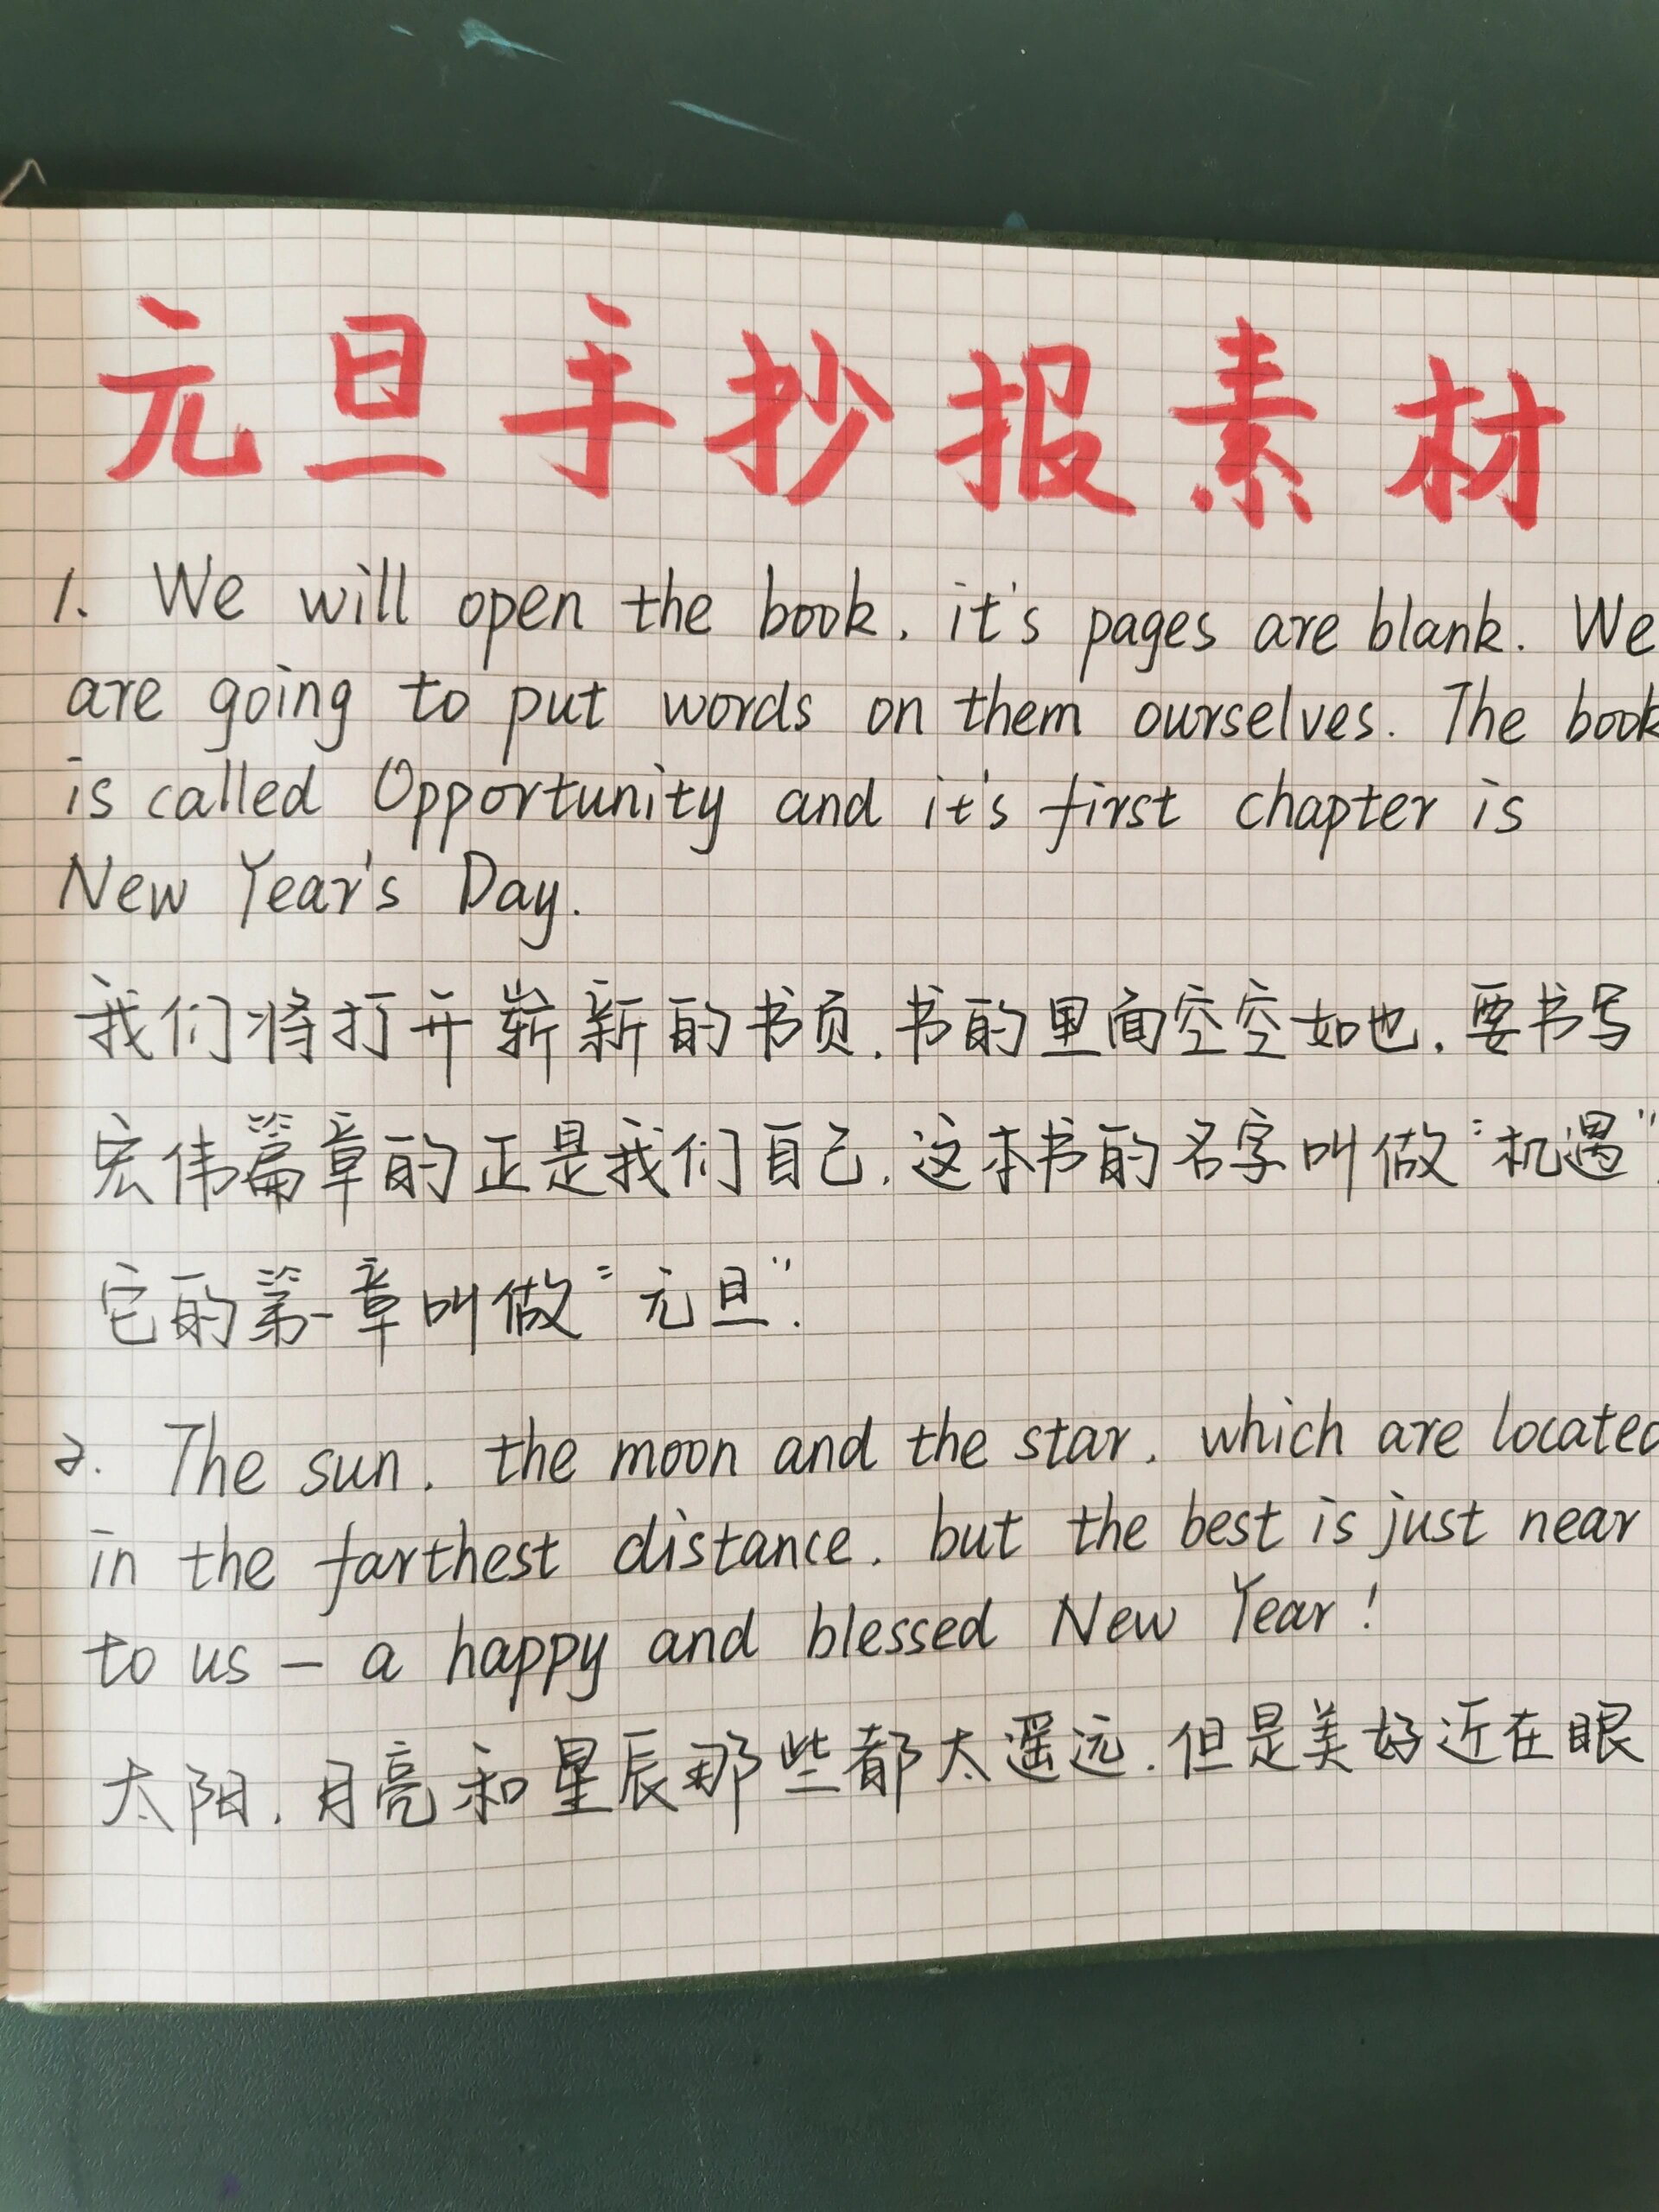 元旦手抄报素材
1. We will open the book. it's pages are blank. We
are going to put words on them ourselves. The book
is called Opportunity and it's first chapter is
New Year's Day.
我们将打开崭新的书页.书的里面空空如也.要书写
宏伟篇章的正是我们自己.这本书的名字叫做"机遇".
它的第一章叫做"元旦".
2. The sun. the moon and the star. which are located
in the farthest distance. but the best is just near
to us — a happy and blessed New Year!
太阳.月亮和星辰那些都太遥远.但是美好近在眼